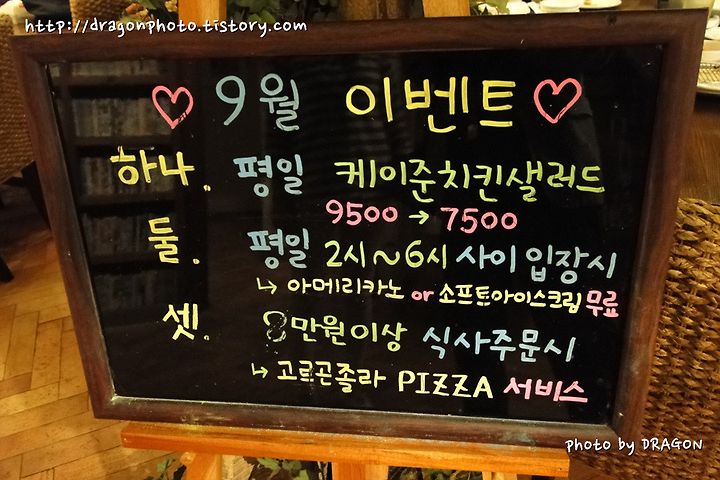 http://dragonphoto.tistory.com/
♡ 9월 이벤트 ♡
하나. 평일 케이준치킨샐러드
9500 → 7500
둘. 평일 2시~6시 사이 입장시
↳ 아메리카노 or 소프트아이스크림 무료
셋. 8만원이상 식사주문시
↳ 고르곤졸라 PIZZA 서비스
photo by DRAGON